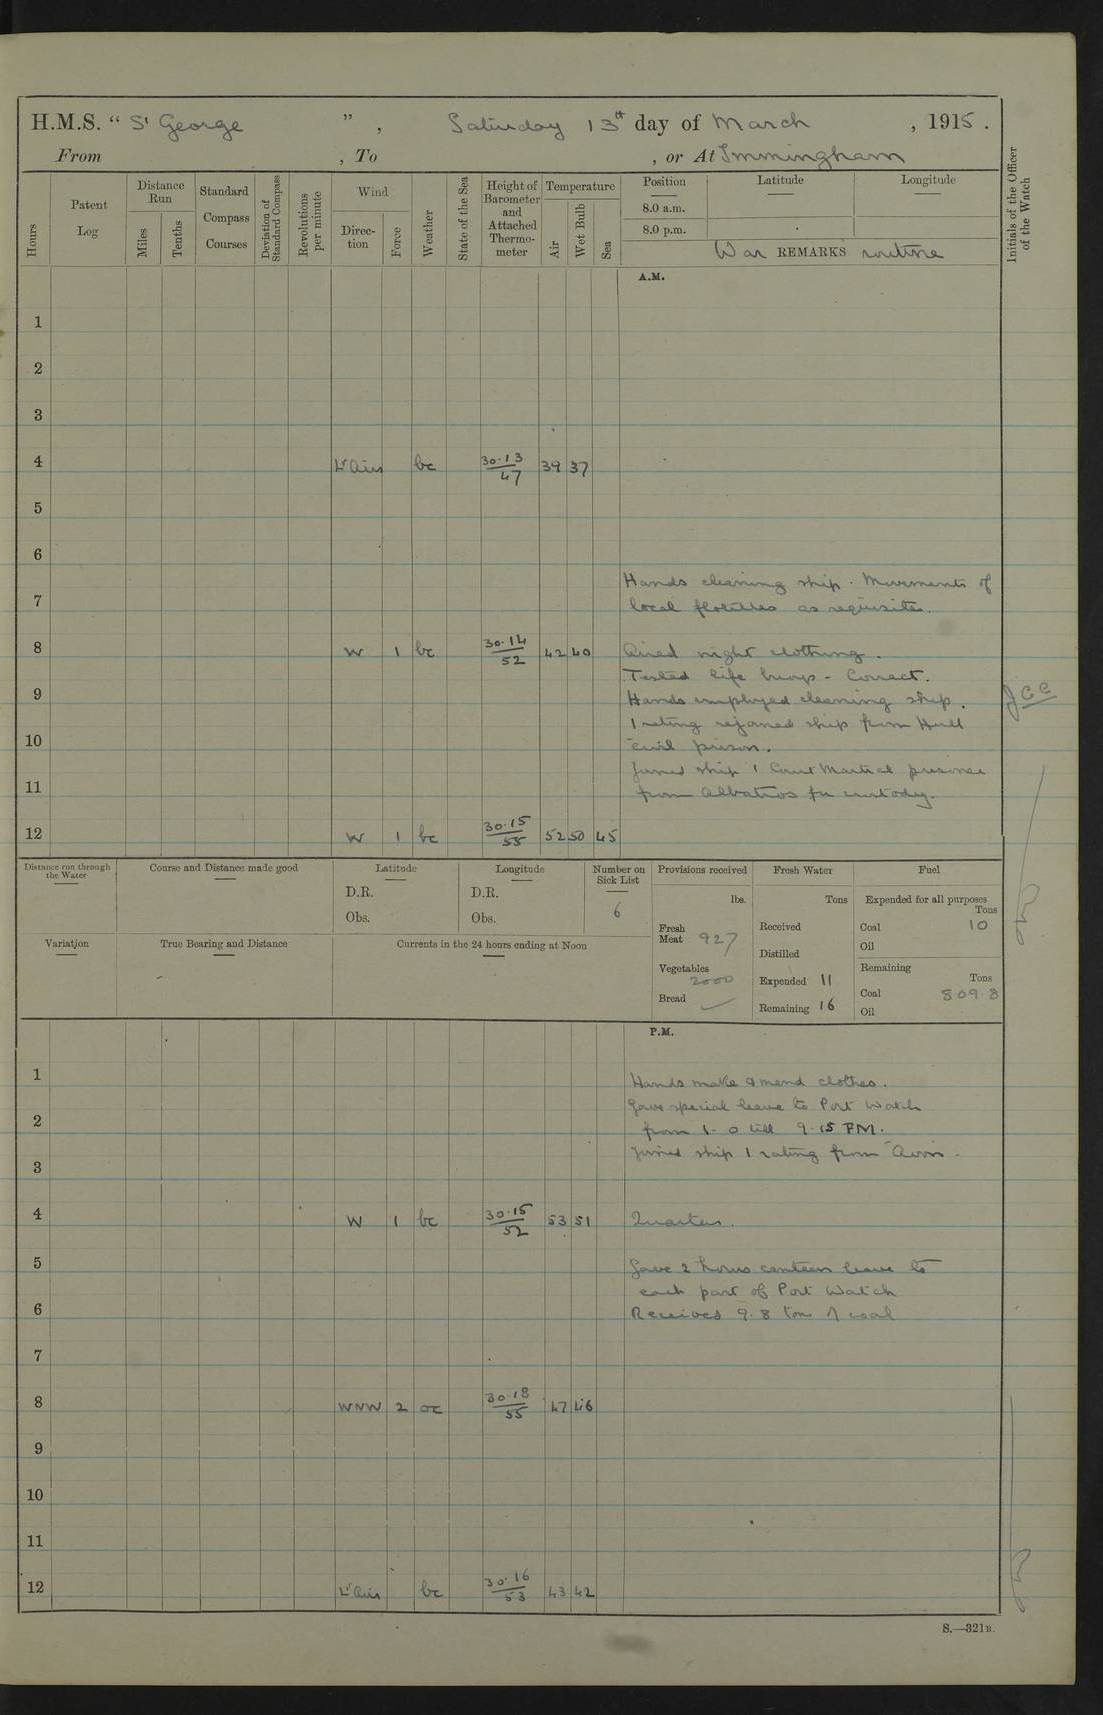 H.M.S. " St George " , Saturday 13th day of March , 1915 .
From , To , or At Immingham
Hours
Patent Log
Distance Run
Miles
Tenths
Standard Compass Courses
Deviation of Standard Compass
Revolutions per minute
Wind
Direction
Force
Weather
State of the Sea
Height of Barometer and Attached Thermometer
Temperature
Air
Wet Bulb
Sea
Position
8.0 a.m.
8.0 p.m.
Latitude
Longitude
War REMARKS routine
Initials of the Officer of the Watch
A.M.
1
2
3
4 Lt Airs bc 30.13/47 39 37
5
6
Hands cleaning ship. Movements of
7 local flotillas as requisite.
8 W 1 bc 30.14/52 42 40 Aired night clothing.
Tested life buoys - Correct.
9 Hands employed cleaning ship.
1 rating rejoined ship from Hull
10 civil prison.
Joined ship 1 Court Martial prisoner
11 from Albatros for custody.
12 W 1 bc 30.15/55 52 50 45
Distance run through the Water
Course and Distance made good
Latitude
D.R.
Obs.
Longitude
D.R.
Obs.
Number on Sick List
6
Provisions received
lbs.
Fresh Meat 927
Vegetables 2000
Bread
Fresh Water
Tons
Received
Distilled
Expended 11
Remaining 16
Fuel
Expended for all purposes
Tons
Coal 10
Oil
Remaining
Tons
Coal 809.8
Oil
Variation
True Bearing and Distance
Currents in the 24 hours ending at Noon
P.M.
1 Hands make & mend clothes.
Gave special leave to Port Watch
2 from 1-0 till 9.15 PM.
3 Joined ship 1 rating from "Avon.
4 W 1 bc 30.15/52 53 51 Quarters.
5 Gave 2 hours canteen leave to
each part of Port Watch
6 Received 9.8 tons of coal
7
8 WNW 2 oc 30.18/55 47 46
9
10
11
12 Lt Airs bc 30.16/53 43 42
S.—321B.